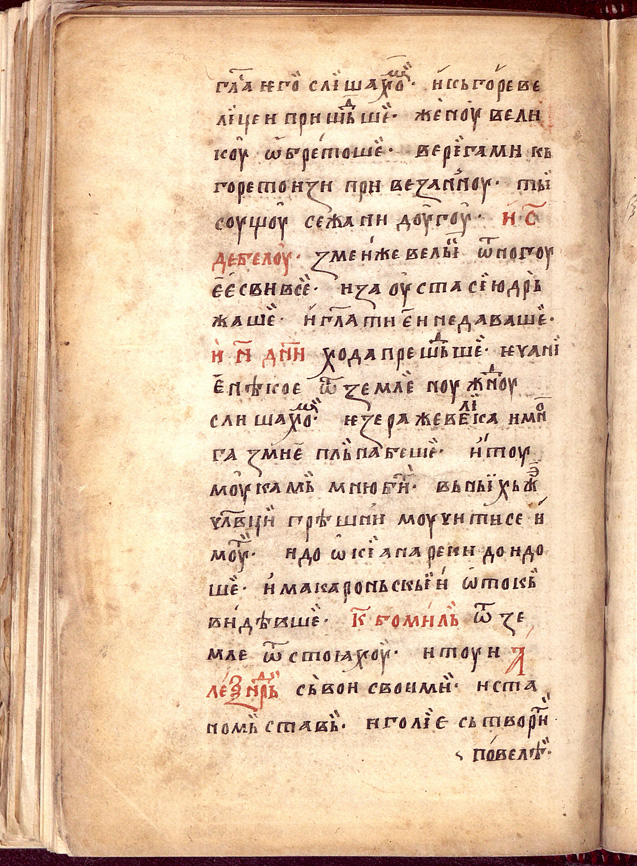 гл҃а ѥгѡ слїшахмо· и къ горе ве
лїцеи пришьше· женоу вели
коу ѡбретоше· веригами къ
горе тоизи привезанноу· ты
соущоу сежани доугоу· и с҃
дебелоу· змеи же велыи ѿ ногоу
ѥе свивсе· и за оуста сию дрь
жаше· и гл҃ати ѥи не даваше·
и н҃ дн҃и хода прешьдьше· ѥчанї
е некое ѿ земле ноуждноу
слишахмо· ѥзера же велїка имнѡ
га змие пльна беше· и тоу
моукамь мнюгїи· вьпыхь же
чл҃вци грешни моучити се и
моу· и до ѡкїана реки доидо
ше· и макароньскыи ѡтокь
видевше· к҃ бо миль ѿ зе
мле ѿстоахоу· и тоу и а
леѯандрь сь вои своими· и ста
номь ставь· и голїе сьтвори
повеле·